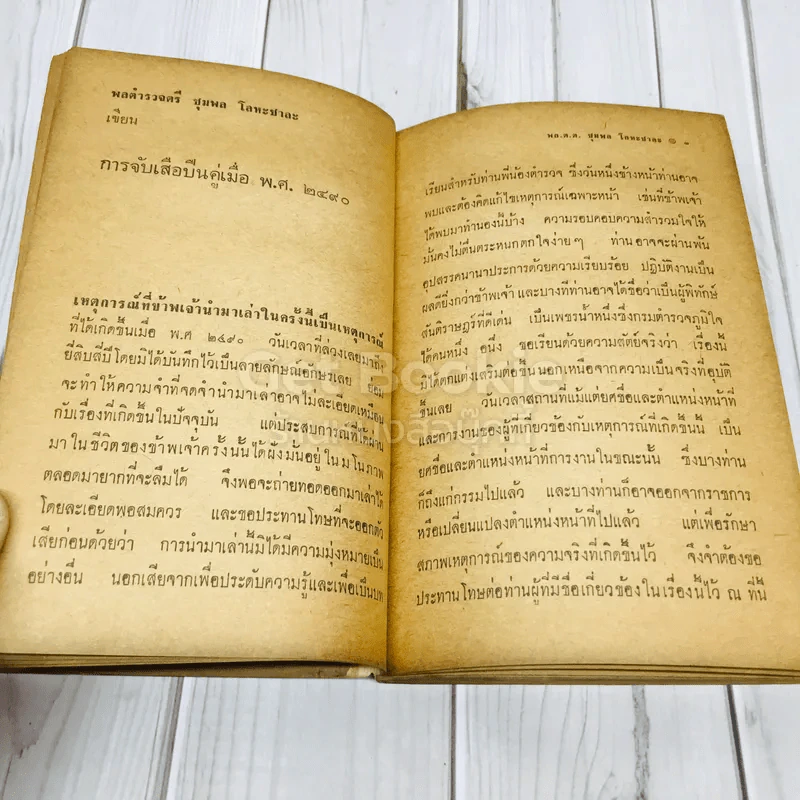 พลตำรวจตรี ชุมพล โลหะชาละ
เขียน
การจับเสือปืนคู่เมื่อ พ.ศ. ๒๔๙๐
เหตุการณ์ที่ข้าพเจ้านำมาเล่าในครั้งนี้เป็นเหตุการณ์
ที่ได้เกิดขึ้นเมื่อ พ.ศ ๒๔๙๐ วันเวลาที่ล่วงเลยมาถึง
ยี่สิบสี่ปีโดยมิได้บันทึกไว้เป็นลายลักษณ์อักษรเลย ย่อม
จะทำให้ความจำที่จดจำนำมาเล่าอาจไม่ละเอียดเหมือน
กับเรื่องที่เกิดขึ้นในปัจจุบัน แต่ประสบการณ์ที่ได้ผ่าน
มาในชีวิตของข้าพเจ้าครั้งนั้นได้ฝังมั่นอยู่ในมโนภาพ
ตลอดมายากที่จะลืมได้ จึงพอจะถ่ายทอดออกมาเล่าได้
โดยละเอียดพอสมควร และขอประทานโทษที่จะออกตัว
เสียก่อนด้วยว่า การนำมาเล่านี้มิได้มีความมุ่งหมายเป็น
อย่างอื่น นอกเสียจากเพื่อประดับความรู้และเพื่อเป็นบท
พล.ต.ต. ชุมพล โลหะชาละ
เรียนสำหรับท่านพี่น้องตำรวจ ซึ่งวันหนึ่งข้างหน้าท่านอาจ
พบและต้องคิดแก้ไขเหตุการณ์เฉพาะหน้า เช่นที่ข้าพเจ้า
ได้พบมาทำนองนี้บ้าง ความรอบคอบความสำรวมใจให้
มั่นคงไม่ตื่นตระหนกตกใจง่ายๆ ท่านอาจจะผ่านพ้น
อุปสรรคนานาประการด้วยความเรียบร้อย ปฏิบัติงานเป็น
ผลดียิ่งกว่าข้าพเจ้า และบางทีท่านอาจได้ชื่อว่าเป็นผู้พิทักษ์
สันติราษฎร์ที่ดีเด่น เป็นเพชรน้ำหนึ่งซึ่งกรมตำรวจภูมิใจ
ได้คนหนึ่ง อนึ่ง ขอเรียนด้วยความสัตย์จริงว่า เรื่องนี้
มิได้ตกแต่งเสริมต่อขึ้นนอกเหนือจากความเป็นจริงที่อุบัติ
ขึ้นเลย วันเวลาสถานที่แม้แต่ยศชื่อและตำแหน่งหน้าที่
และการงานของผู้ที่เกี่ยวข้องกับเหตุการณ์ที่เกิดขึ้นนั้น เป็น
ยศชื่อและตำแหน่งหน้าที่การงานในขณะนั้น ซึ่งบางท่าน
ก็ถึงแก่กรรมไปแล้ว และบางท่านก็อาจออกจากราชการ
หรือเปลี่ยนแปลงตำแหน่งหน้าที่ไปแล้ว แต่เพื่อรักษา
สภาพเหตุการณ์ของความจริงที่เกิดขึ้นไว้ จึงจำต้องขอ
ประทานโทษต่อท่านผู้ที่มีชื่อเกี่ยวข้องในเรื่องนี้ไว้ ณ ที่นี้